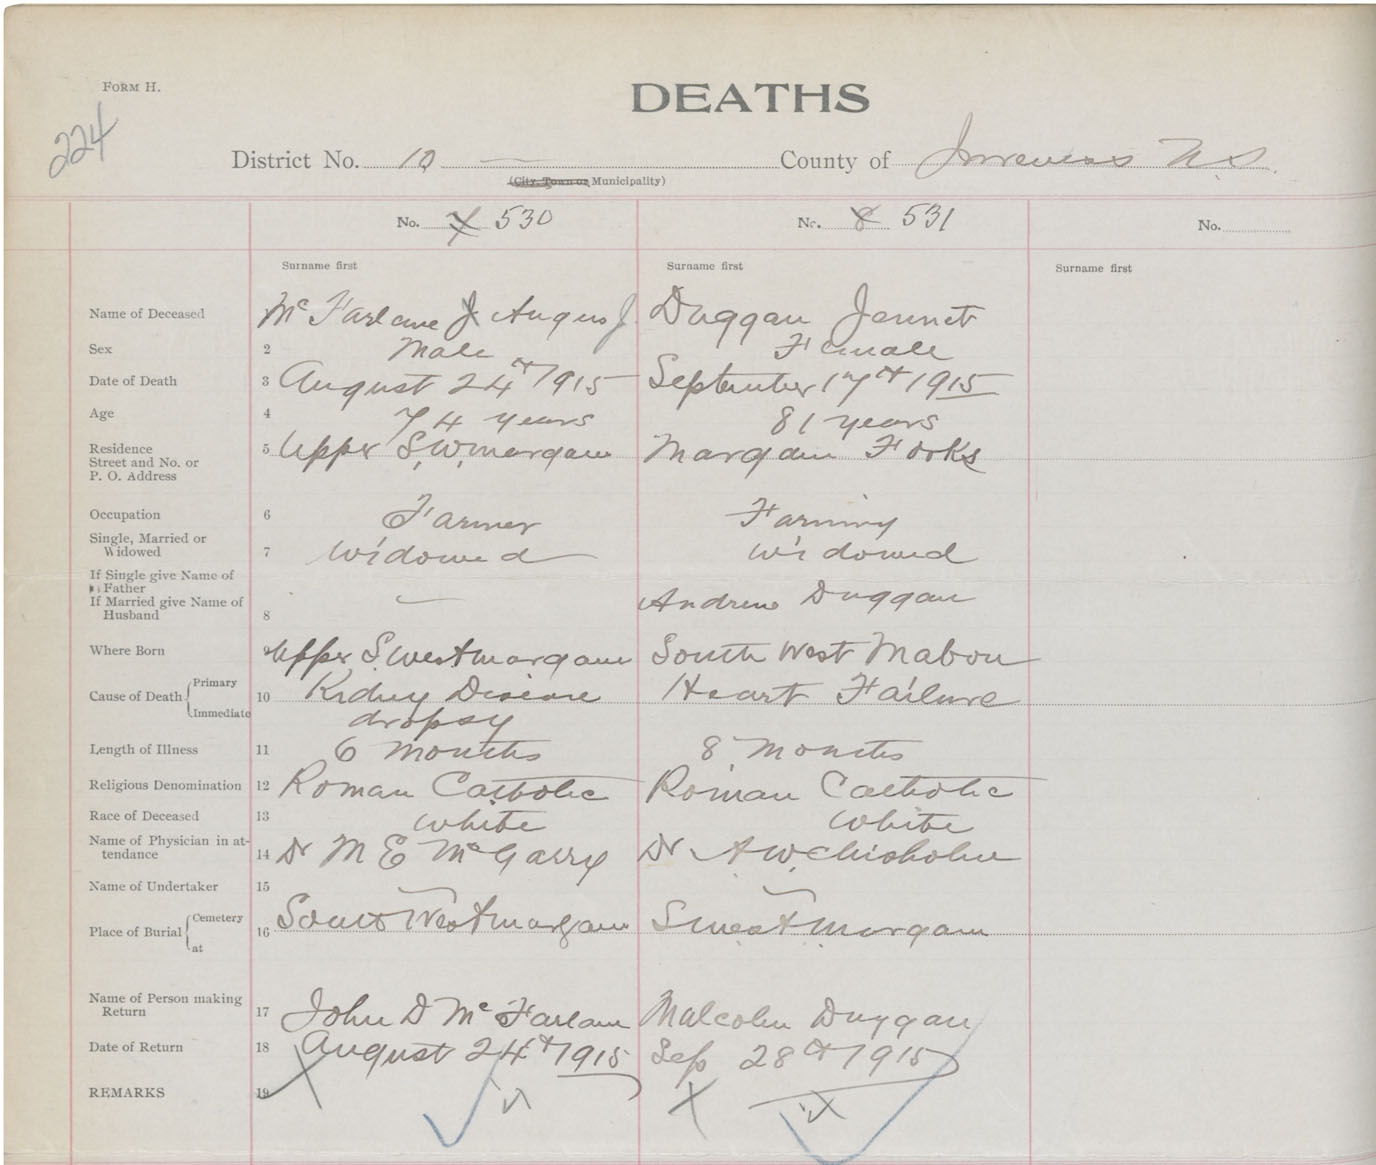 FORM H.
DEATHS
224
District No. 10 County of Inverness N.S.
(City, Town or Municipality)
No. 7 530 No. 8 531 No.
Surname first Surname first Surname first
Name of Deceased McFarlane J Angus J. Duggan Jennet
Sex 2 Male Female
Date of Death 3 August 24th 1915 September 17th 1915
Age 4 74 years 81 years
Residence 5 Upper S.W. Margaree Margaree Forks
Street and No. or
P. O. Address
Occupation 6 Farmer Farming
Single, Married or
Widowed 7 Widowed Widowed
If Single give Name of
Father
If Married give Name of Andrew Duggan
Husband 8
Where Born 9 Upper S. West Margaree South West Mabou
Cause of Death Primary 10 Kidney Disease Heart Failure
Immediate dropsy
Length of Illness 11 6 Months 8 Months
Religious Denomination 12 Roman Catholic Roman Catholic
Race of Deceased 13 White White
Name of Physician in at-
tendance 14 Dr M E McGarry Dr A W Chisholm
Name of Undertaker 15
Place of Burial Cemetery 16 South West Margaree S West Margaree
at
Name of Person making
Return 17 John D McFarlane Malcolm Duggan
Date of Return 18 August 24th 1915 Sep 28th 1915
REMARKS 19